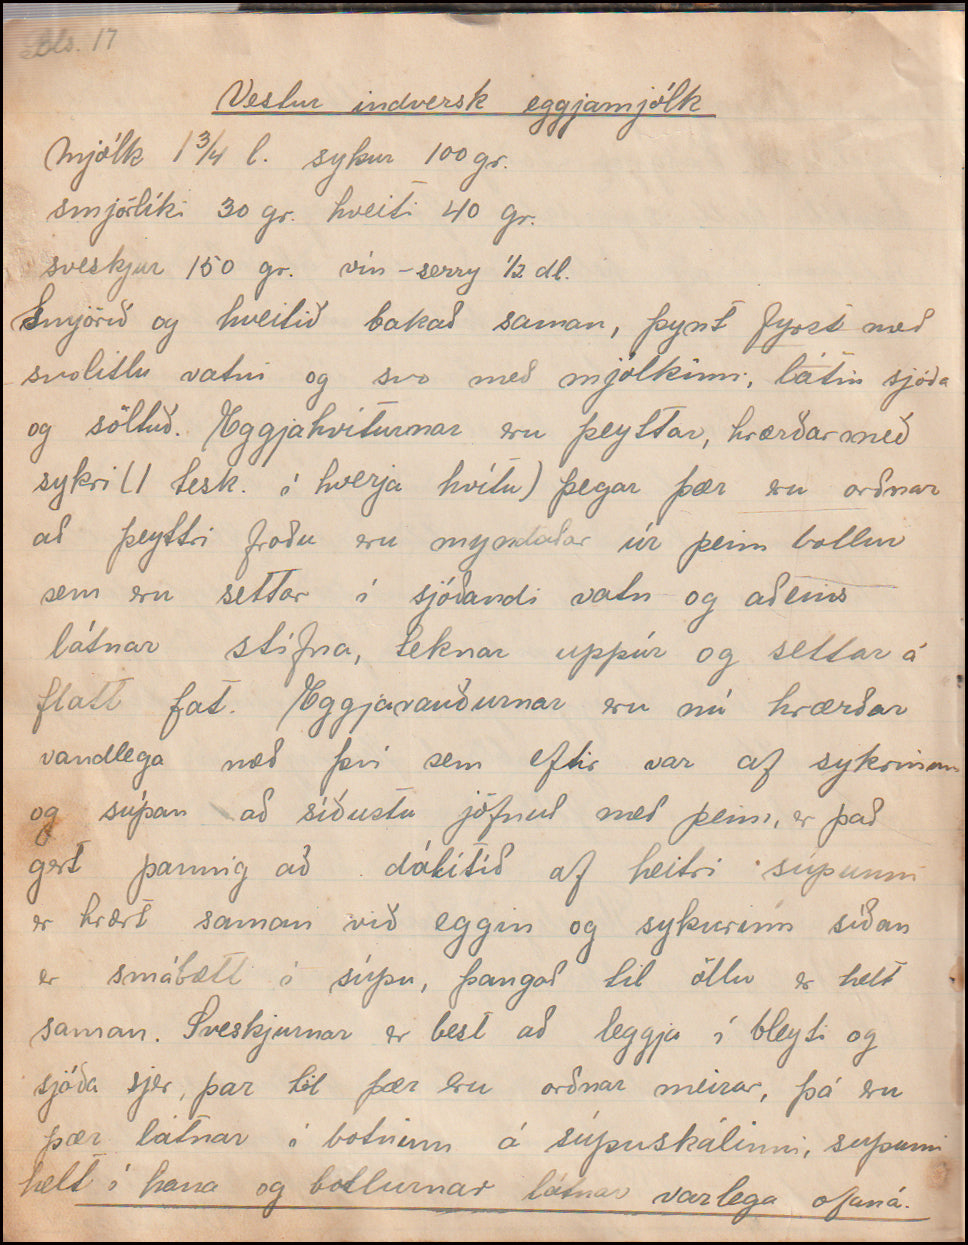 Bls. 17
Vestur indversk eggjamjólk
Mjólk 1 3/4 l. sykur 100 gr.
smjörlíki 30 gr. hveiti 40 gr.
sveskjur 150 gr. vín - serry 1/2 dl.
Smjörið og hveitið bakað saman, þynt fyrst með
svolitlu vatni og svo með mjólkinni, látin sjóða
og söltuð. Eggjahvíturnar eru þeyttar, hrærðar með
sykri (1 tesk. í hverja hvítu) þegar þær eru orðnar
að þeyttri froðu eru myndaðar úr þeim bollur
sem eru settar í sjóðandi vatn og aðeins
látnar stífna, teknar uppúr og settar á
flatt fat. Eggjarauðurnar eru nú hrærðar
vandlega með því sem eftir var af sykrinum
og súpan að síðustu jöfnuð með þeim, er það
gert þannig að dálítið af heitri súpunni
er hrært saman við eggin og sykurinn síðan
er smábætt í súpu, þangað til öllu er helt
saman. Sveskjurnar er best að leggja í bleyti og
sjóða sjer, þar til þær eru orðnar meirar, þá eru
þær látnar í botninn á súpuskálinni, supunni
helt í hana og bollurnar látnar varlega ofaná.